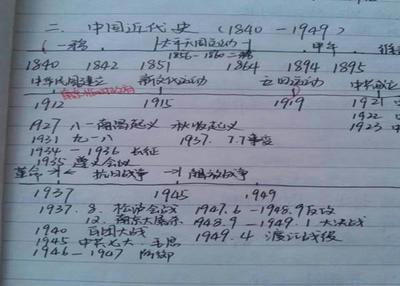 二、中国近代史（1840－1949）
一鸦 太平天国运动 甲午
1856－1860二鸦
1840 1842 1851 1864 1894 1895
中华民国建立 新文化运动 五四运动 中共成立
1912 1915 1919 1921
1922
1923
1927 八一南昌起义 秋收起义
1931 九一八 1937.7.7事变
1934－1936 长征
1935 遵义会议
抗日战争 解放战争
1937 1945 1949
1937.8.松沪会战 1947.6－1948.9反攻
12.南京大屠杀 1948.9－1949.1大决战
1940 百团大战 1949.4 渡江战役
1945 中共七大
1946－1947 防御